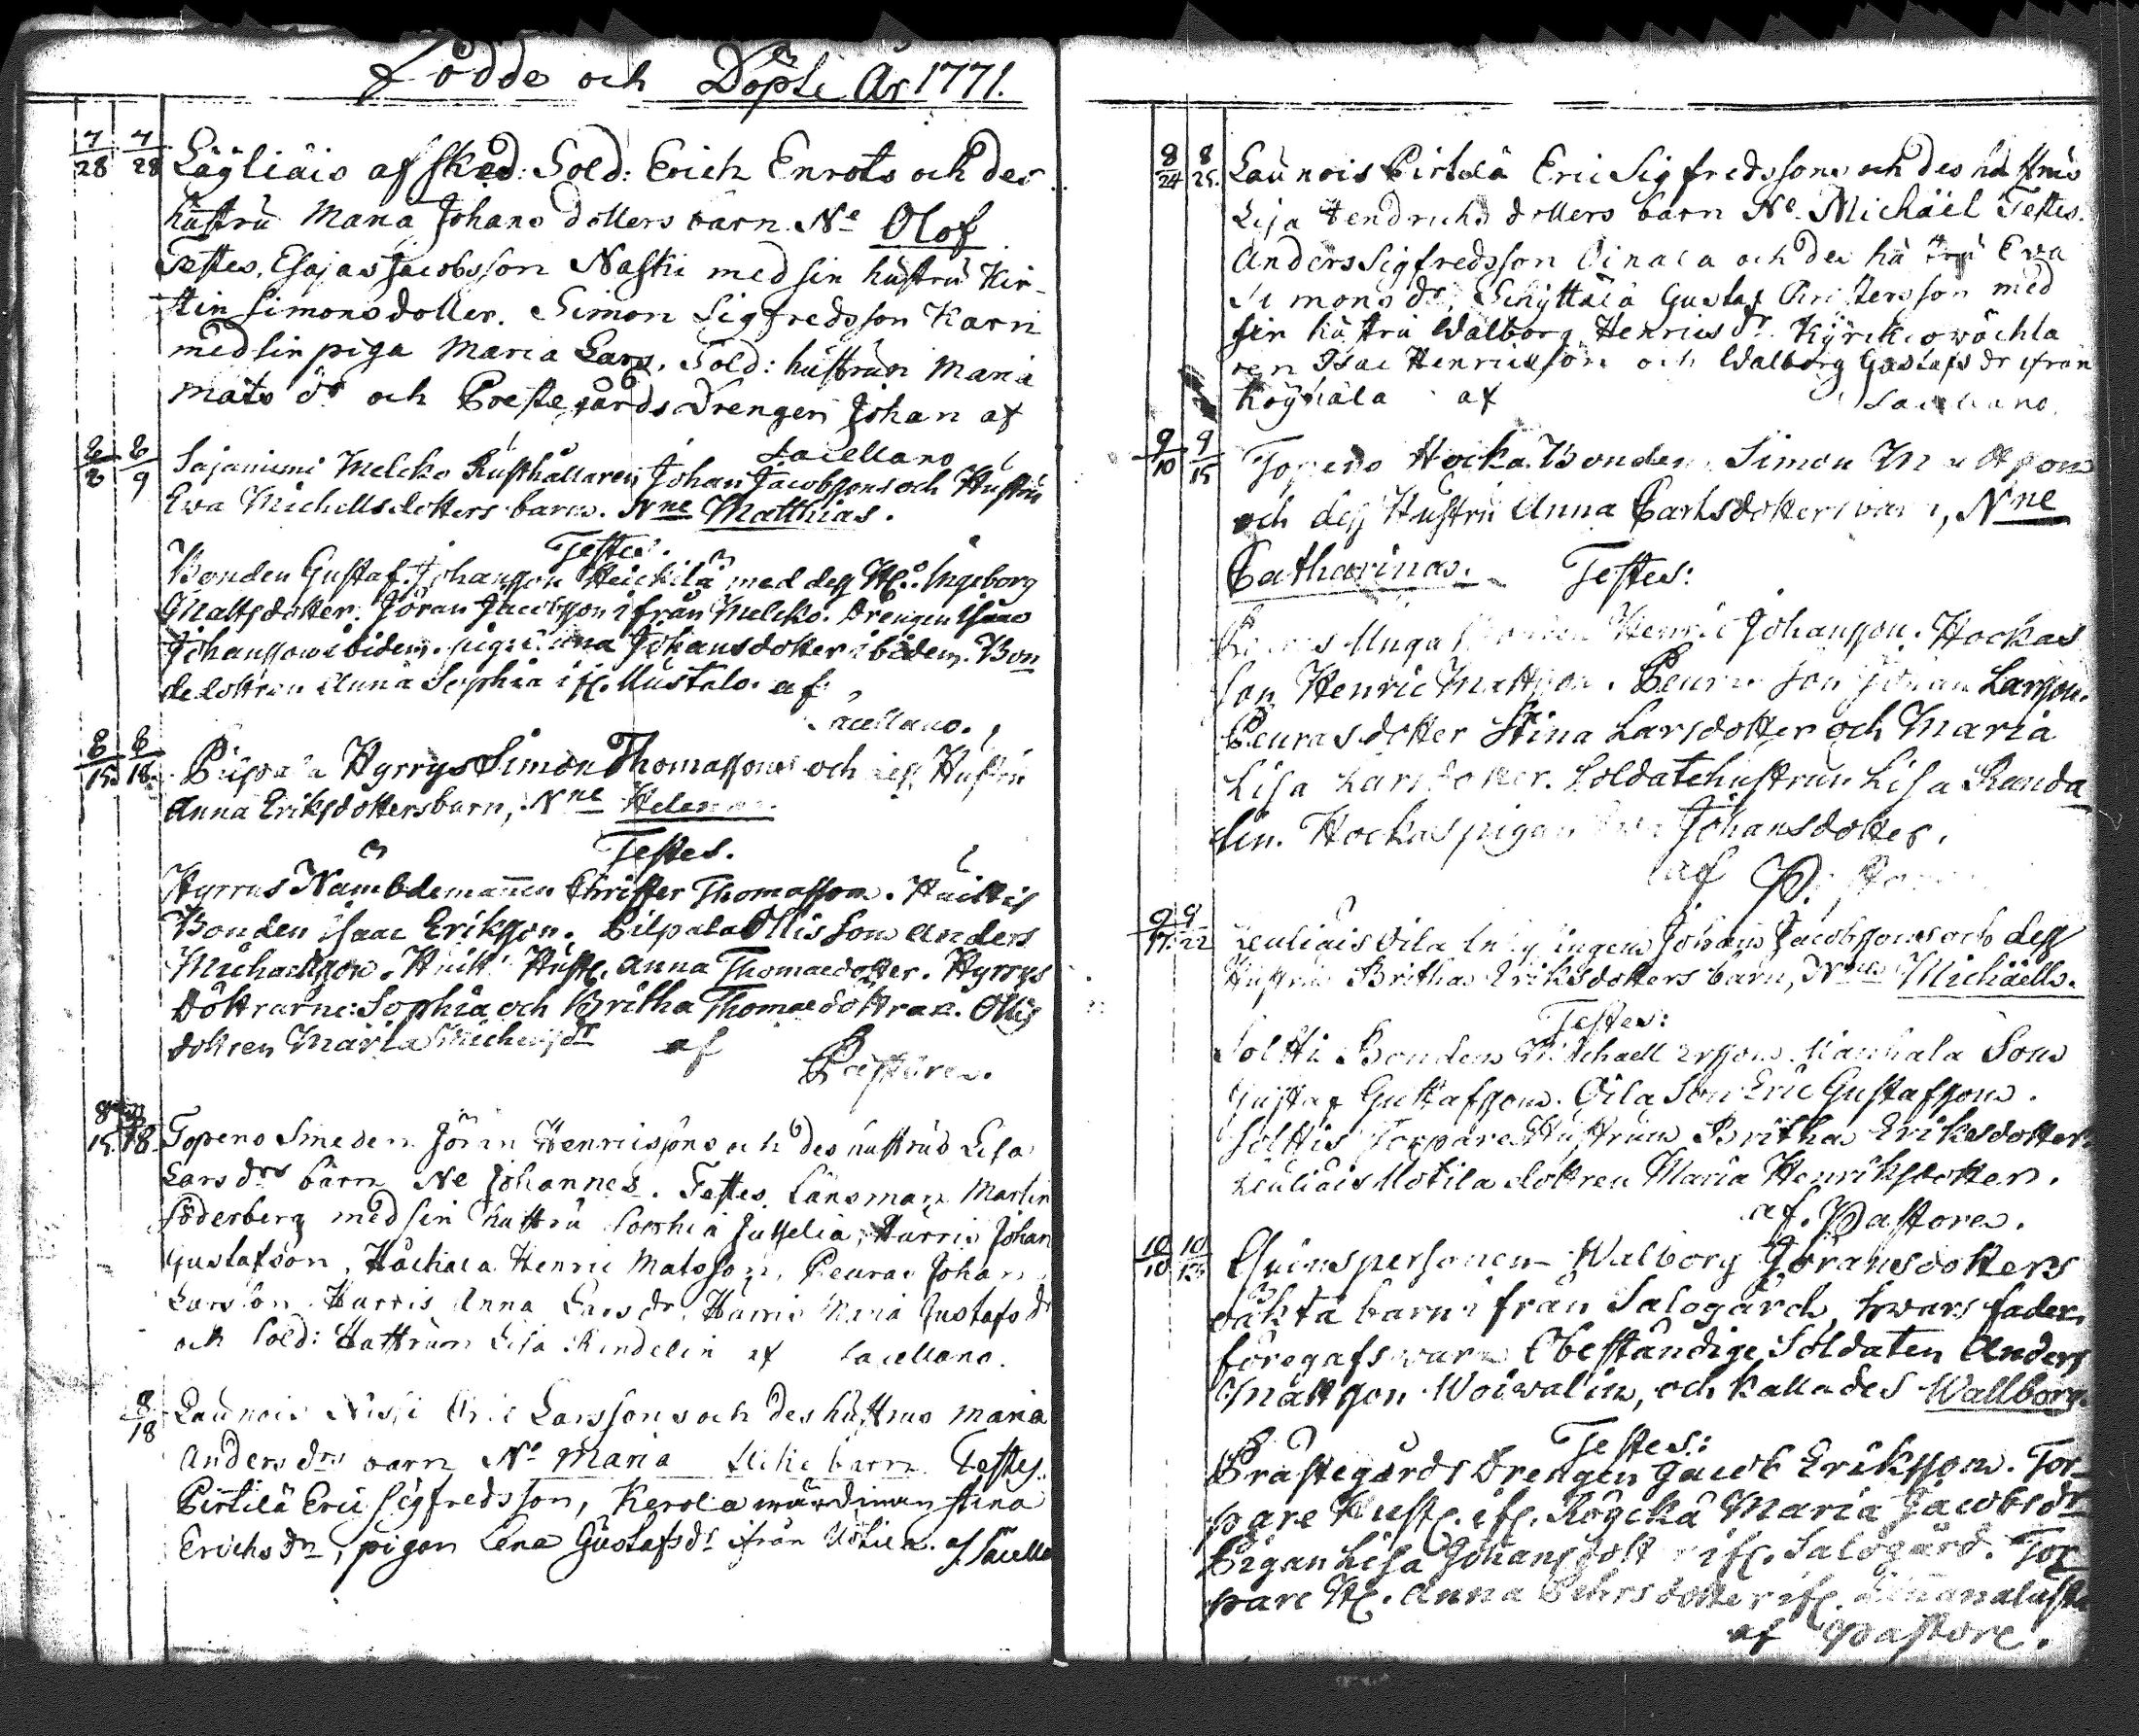 Födde och Döpte År 1771.
7/28 7/28 Lägliäis afsked: Sold: Erich Enrots och des
hustru Maria Johans dotters barn. Ne Olof
Testes, Esajas Jacobsson Naski med sin hustru Kir-
stin Simonsdotter. Simon Sigfredsson Karri
med sin piga Maria Lars. Sold: hustrun Maria
Mats dr och Prestegårds Drengen Johan af
Sacellano
8/8 8/9 Sajaniemi Melcko Rusthållaren Johan Jacobssons och Hustru
Ewa Michellsdotters barn. Nne Matthias.
Testes.
Bonden Gustaf Johansson Heickilä med dess H. Ingeborg
Mattsdotter. Jöran Jacobsson ifrån Melcko. Drengen Isaac
Johansson ibidem. pigan Johansdotter ibidem. Bon
dedottren Anna Sophia if. Mustalo. af
Sacellano.
8/15 8/18 Hyrrys Simon Thomassons och dess Hustru
Anna Eriksdotters barn, Nne Helena.
Testes.
Hyrrys Nämbdemannen Christer Thomasson. Huittis
Bonden Isaac Eriksson. Pilpala Ollis Son Anders
Michaelsson. Huitt. Hust. Anna Thomaedotter. Hyrrys
döttrarne: Sophia och Britha Thomaedöttrar. Ollis
dottren Maria Michelsdr af
Pastore.
8/15 8/18 Topeno Smeden Jöran Henricssons och des hustrus Lisa
Lars drs barn Ne Johannes. Testes. Länsman Martin
Söderberg med sin hustru Sophia Juselia, Harris Johan
Gustafson, Henric Matsson, Peuras Johan
Larsson Harris Anna Lars dr, Harris Maria Gustafs dr
och Sold: Hustrun Lisa Rendelin af Sacellano.
8/18 Launois Nissi Eric Larssons och des hustrus Maria
Anders drs barn Ne Maria Testes.
Pirtilä Eric Sigfredsson, Kerola Stina
Erichs dr, pigan Lena Gustafs dr ifrån af Sacella
8/24 8/25 Launois Pirtilä Eric Sigfredssons och des hustrus
Lisa Hendrichs dotters barn Ne. Michäel Testes.
Anders Sigfredsson Oinala och des hustru Ewa
Simons dr, Schyttälä Gustaf Christersson med
sin hustru Walborg Henrics dr. Kyrckiowächta
ren Isac Henricsson och Walborg Gustafs dr ifrån
af Sacellano.
9/10 9/15 Topeno Hocka Bonden Simon Mattssons
och dess Hustru Anna Carlsdotters barn, Nne
Catharina. Testes:
Unga Henric Johansson. Hockas
Son Henric Mattsson. Peuras son Johan Larsson.
Peuras dotter Stina Larsdotter och Maria
Lisa Larsdotter. Soldatehustrun Lisa Randa
lin. Hockas pigan Johansdotter.
af Pastore
9/17 9/22 Leuliäis Oila Johan Jacobssons och dess
Hustru Britha Eriksdotters barn, Nne Michäell.
Testes:
Soltti Bonden Michaell Son
Gustaf Gustafsson. Oila Son Eric Gustafsson.
Solttis Torpare Hustrun Britha Eriksdotter.
Leuliäis Uotila dottren Maria Henriksdotter.
af. Pastore.
10/10 10/13 Qvinspersonen Walborg Göransdotters
oäkta barn ifrån Salogård, hwars fader
föregafs wara Obeständige Soldaten Anders
Mattsson Woiwalin, och kallades Wallborg.
Testes:
Prästegårds Drengen Jacob Eriksson. Tor-
pare Hust. if. Rögckä Maria Jacobsdr
Pigan Lisa Johansdott if. Salogård. Tor-
pare H. Anna Pehrsdotter if.
af Pastore.